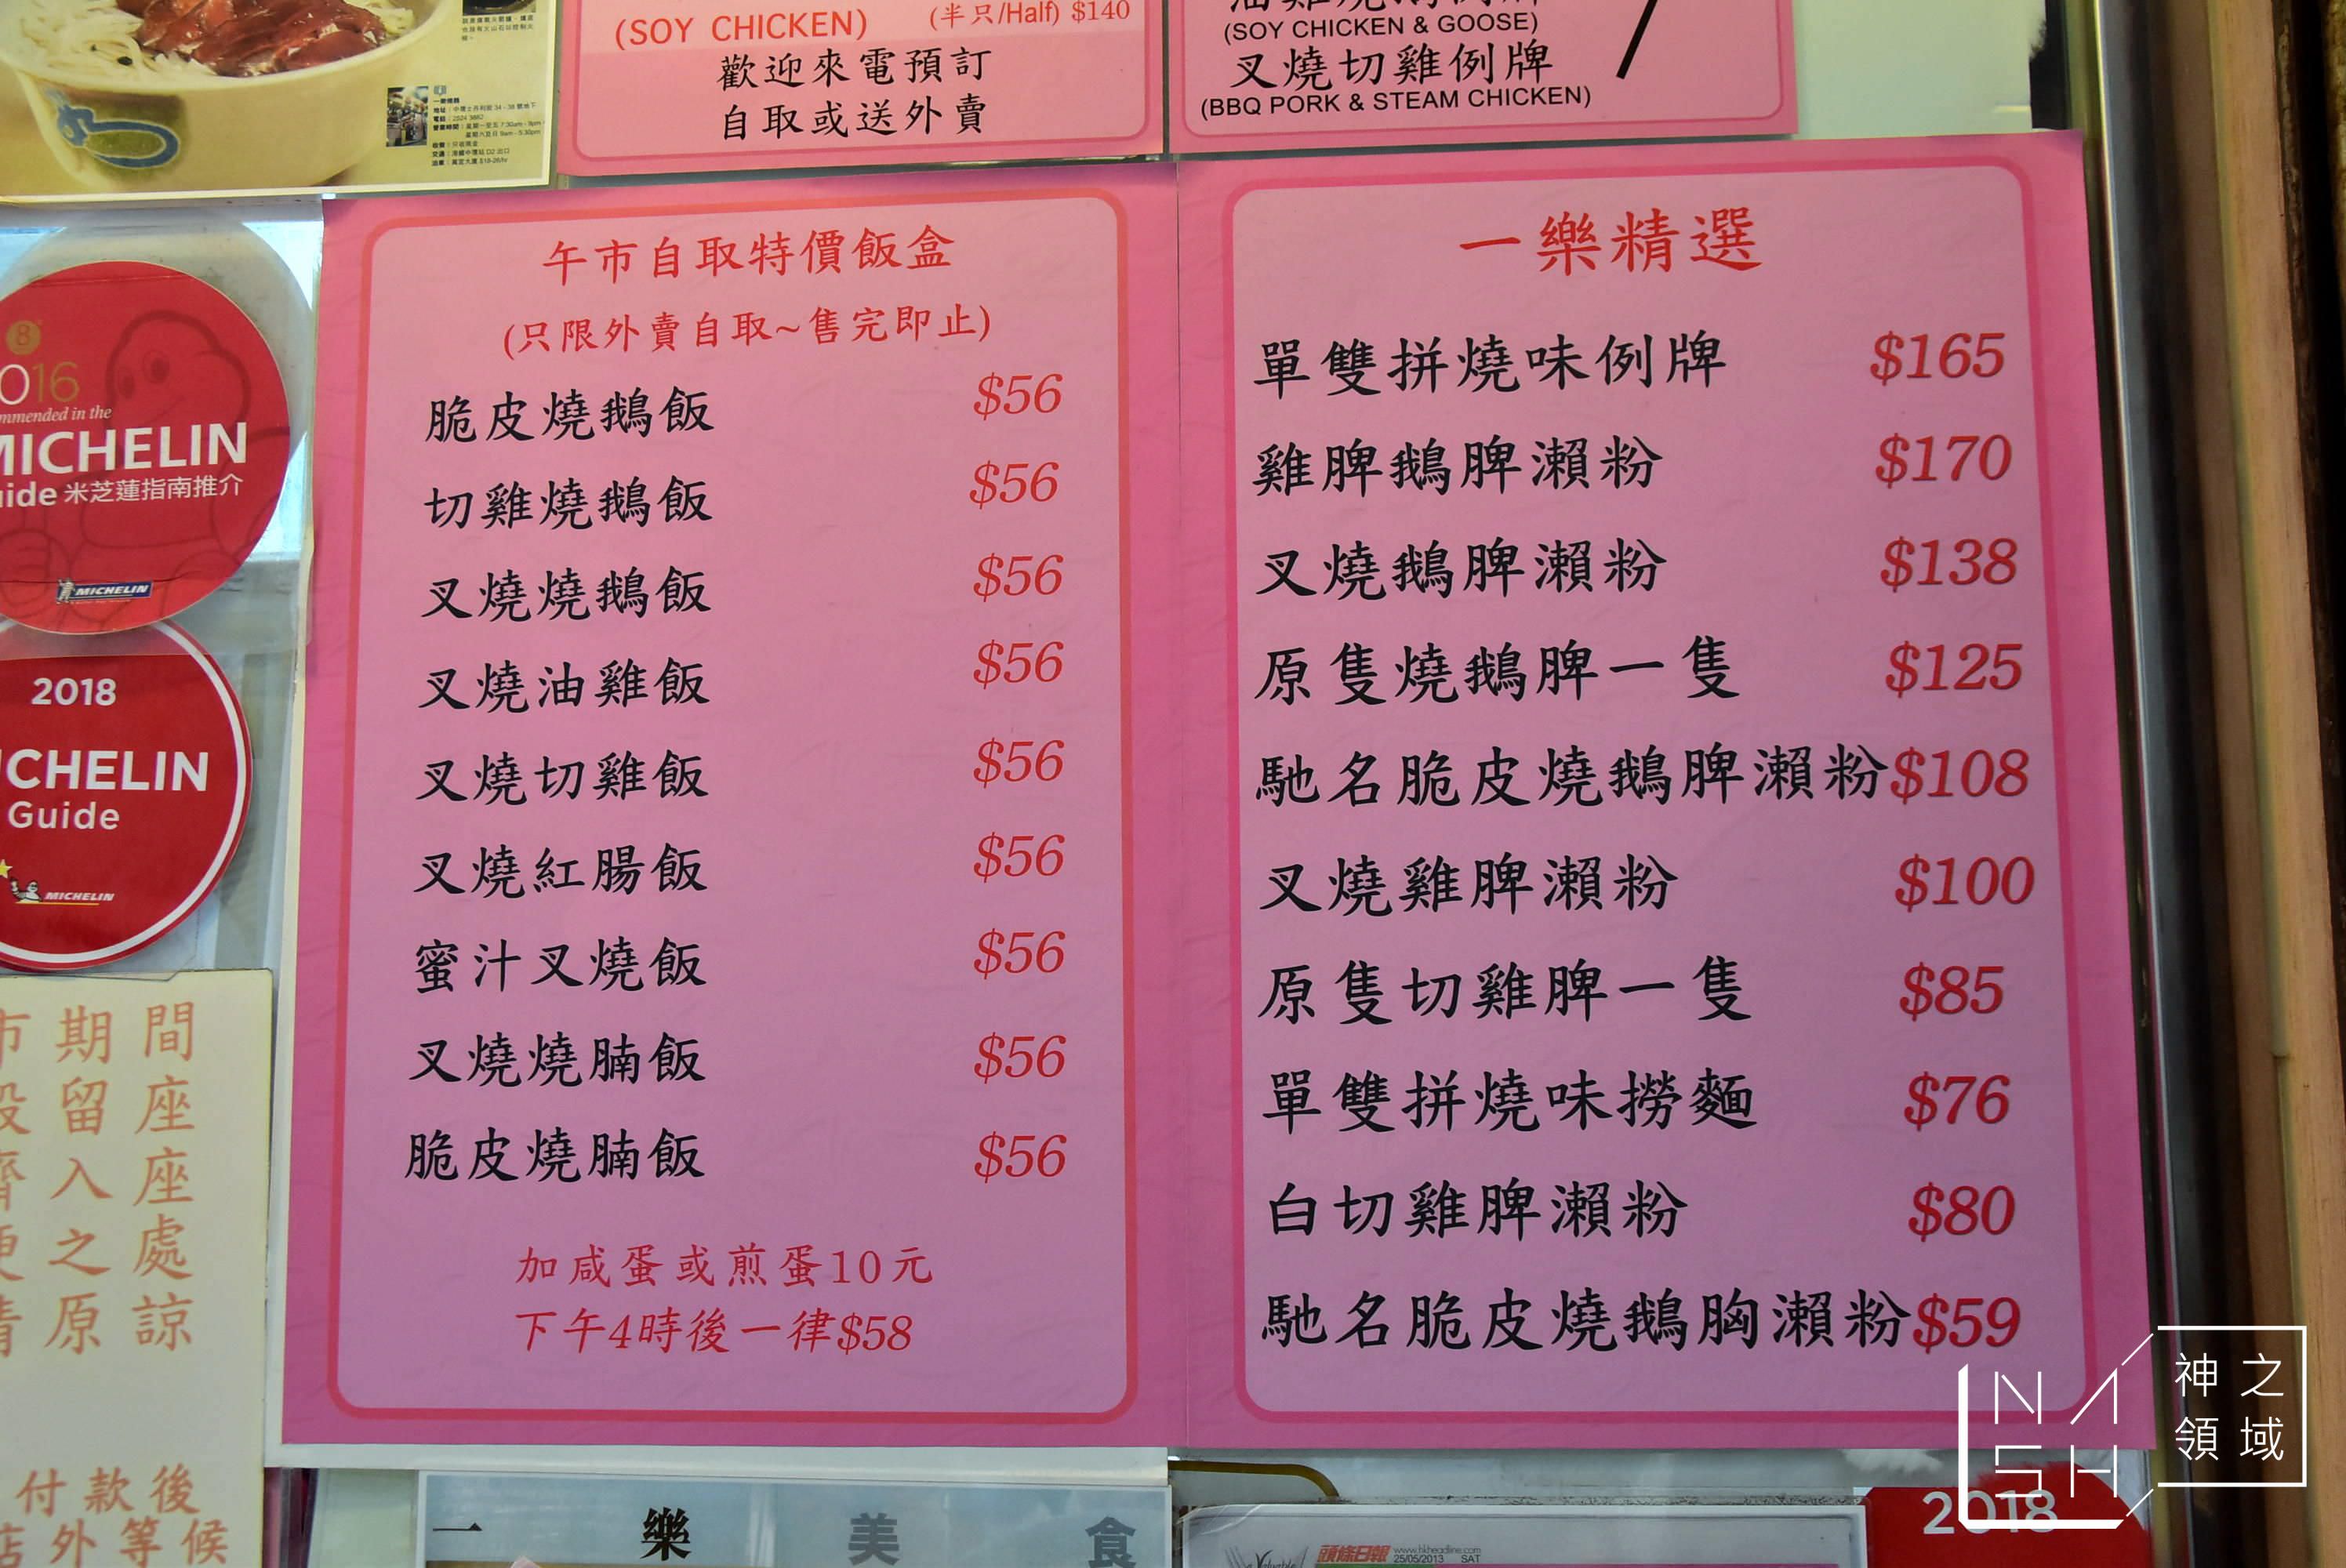 (SOY CHICKEN) (半只/Half) $140
歡迎來電預訂
自取或送外賣
(SOY CHICKEN & GOOSE)
叉燒切雞例牌
(BBQ PORK & STEAM CHICKEN)
午市自取特價飯盒
(只限外賣自取~售完即止)
脆皮燒鵝飯 $56
切雞燒鵝飯 $56
叉燒燒鵝飯 $56
叉燒油雞飯 $56
叉燒切雞飯 $56
叉燒紅腸飯 $56
蜜汁叉燒飯 $56
叉燒燒腩飯 $56
脆皮燒腩飯 $56
加咸蛋或煎蛋10元
下午4時後一律$58
一樂精選
單雙拼燒味例牌 $165
雞脾鵝脾瀨粉 $170
叉燒鵝脾瀨粉 $138
原隻燒鵝脾一隻 $125
馳名脆皮燒鵝脾瀨粉$108
叉燒雞脾瀨粉 $100
原隻切雞脾一隻 $85
單雙拼燒味撈麵 $76
白切雞脾瀨粉 $80
馳名脆皮燒鵝胸瀨粉$59
MICHELIN
米芝蓮指南推介
MICHELIN
2018
Guide
MICHELIN
期間
留座
入座
之處
原諒
付款後
外等候
一樂美食
頭條日報 www.hkheadline.com
25/05/2013 SAT
2018
NASH
神之
領域